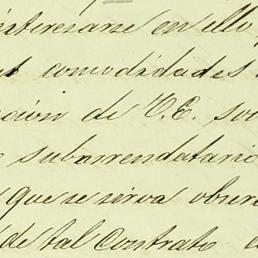 interesarse en ello
comodidades
ción de V.E. so
subarrendatario
que se sirva obser
de tal Contrato